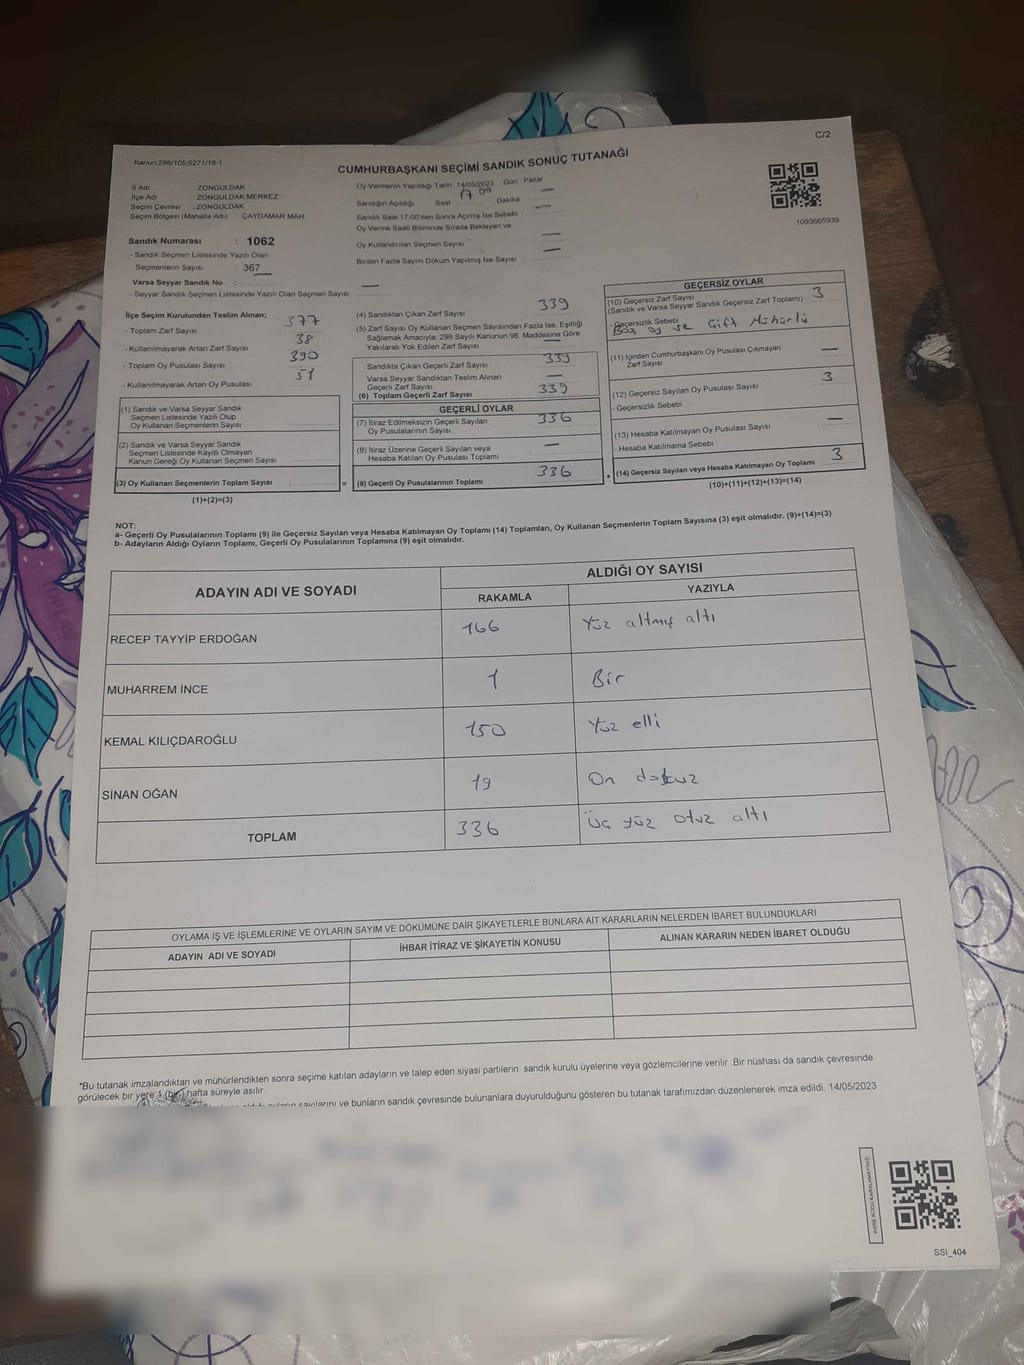 C/2
Kanun:298/105,6271/18-1
CUMHURBAŞKANI SEÇİMİ SANDIK SONUÇ TUTANAĞI
1093665939
İl Adı : ZONGULDAK
İlçe Adı : ZONGULDAK MERKEZ
Seçim Çevresi : ZONGULDAK
Seçim Bölgesi (Mahalle Adı) ÇAYDAMAR MAH.
Sandık Numarası : 1062
- Sandık Seçmen Listesinde Yazılı Olan
Seçmenlerin Sayısı : 367
Varsa Seyyar Sandık No :
- Seyyar Sandık Seçmen Listesinde Yazılı Olan Seçmen Sayısı
Oy Vermenin Yapıldığı Tarih 14/05/2023 Gün Pazar
Sandığın Açıldığı Saat 17 Dakika
Sandık Saat 17:00'den Sonra Açılmış İse Sebebi
Oy Verme Saati Bitiminde Sırada Bekleyen ve
Oy Kullandırılan Seçmen Sayısı
Birden Fazla Sayım Döküm Yapılmış İse Sayısı
İlçe Seçim Kurulundan Teslim Alınan;
- Toplam Zarf Sayısı 377
- Kullanılmayarak Artan Zarf Sayısı 38
- Toplam Oy Pusulası Sayısı 390
- Kullanılmayarak Artan Oy Pusulası 51
(1) Sandık ve Varsa Seyyar Sandık
Seçmen Listesinde Yazılı Olup
Oy Kullanan Seçmenlerin Sayısı
(2) Sandık ve Varsa Seyyar Sandık
Seçmen Listesinde Kayıtlı Olmayan
Kanun Gereği Oy Kullanan Seçmen Sayısı
(3) Oy Kullanan Seçmenlerin Toplam Sayısı =
(1)+(2)=(3)
(4) Sandıktan Çıkan Zarf Sayısı 339
(5) Zarf Sayısı Oy Kullanan Seçmen Sayısından Fazla İse, Eşitliği
Sağlamak Amacıyla; 298 Sayılı Kanunun 98. Maddesine Göre
Yakılarak Yok Edilen Zarf Sayısı
Sandıkta Çıkan Geçerli Zarf Sayısı 339
Varsa Seyyar Sandıktan Teslim Alınan
Geçerli Zarf Sayısı
(6) Toplam Geçerli Zarf Sayısı 339
GEÇERLİ OYLAR
(7) İtiraz Edilmeksizin Geçerli Sayılan
Oy Pusulalarının Sayısı 336
(8) İtiraz Üzerine Geçerli Sayılan veya
Hesaba Katılan Oy Pusulası Toplamı
(9) Geçerli Oy Pusulalarının Toplamı 336 +
GEÇERSİZ OYLAR
(10) Geçersiz Zarf Sayısı 3
(Sandık ve Varsa Seyyar Sandık Geçersiz Zarf Toplamı)
- Geçersizlik Sebebi Boş oy Çift Mühürlü
(11) İçinden Cumhurbaşkanı Oy Pusulası Çıkmayan
Zarf Sayısı
(12) Geçersiz Sayılan Oy Pusulası Sayısı 3
- Geçersizlik Sebebi
(13) Hesaba Katılmayan Oy Pusulası Sayısı
- Hesaba Katılmama Sebebi
(14) Geçersiz Sayılan veya Hesaba Katılmayan Oy Toplamı 3
(10)+(11)+(12)+(13)=(14)
NOT:
a- Geçerli Oy Pusulalarının Toplamı (9) ile Geçersiz Sayılan veya Hesaba Katılmayan Oy Toplamı (14) Toplamları, Oy Kullanan Seçmenlerin Toplam Sayısına (3) eşit olmalıdır. (9)+(14)=(3)
b- Adayların Aldığı Oyların Toplamı, Geçerli Oy Pusulalarının Toplamına (9) eşit olmalıdır.
ADAYIN ADI VE SOYADI ALDIĞI OY SAYISI
RAKAMLA YAZIYLA
RECEP TAYYİP ERDOĞAN 166 Yüz altmış altı
MUHARREM İNCE 1 Bir
KEMAL KILIÇDAROĞLU 150 Yüz elli
SİNAN OĞAN 19 On dokuz
TOPLAM 336 Üç yüz otuz altı
OYLAMA İŞ VE İŞLEMLERİNE VE OYLARIN SAYIM VE DÖKÜMÜNE DAİR ŞİKAYETLERLE BUNLARA AİT KARARLARIN NELERDEN İBARET BULUNDUKLARI
ADAYIN ADI VE SOYADI İHBAR İTİRAZ VE ŞİKAYETİN KONUSU ALINAN KARARIN NEDEN İBARET OLDUĞU
*Bu tutanak imzalandıktan ve mühürlendikten sonra seçime katılan adayların ve talep eden siyasi partilerin sandık kurulu üyelerine veya gözlemcilerine verilir. Bir nüshası da sandık çevresinde
görülecek bir yere 1 (bir) hafta süreyle asılır.
oyların sayılarını ve bunların sandık çevresinde bulunanlara duyurulduğunu gösteren bu tutanak tarafımızdan düzenlenerek imza edildi. 14/05/2023
KARE KODU KARALAMAYINIZ!
SSI_404